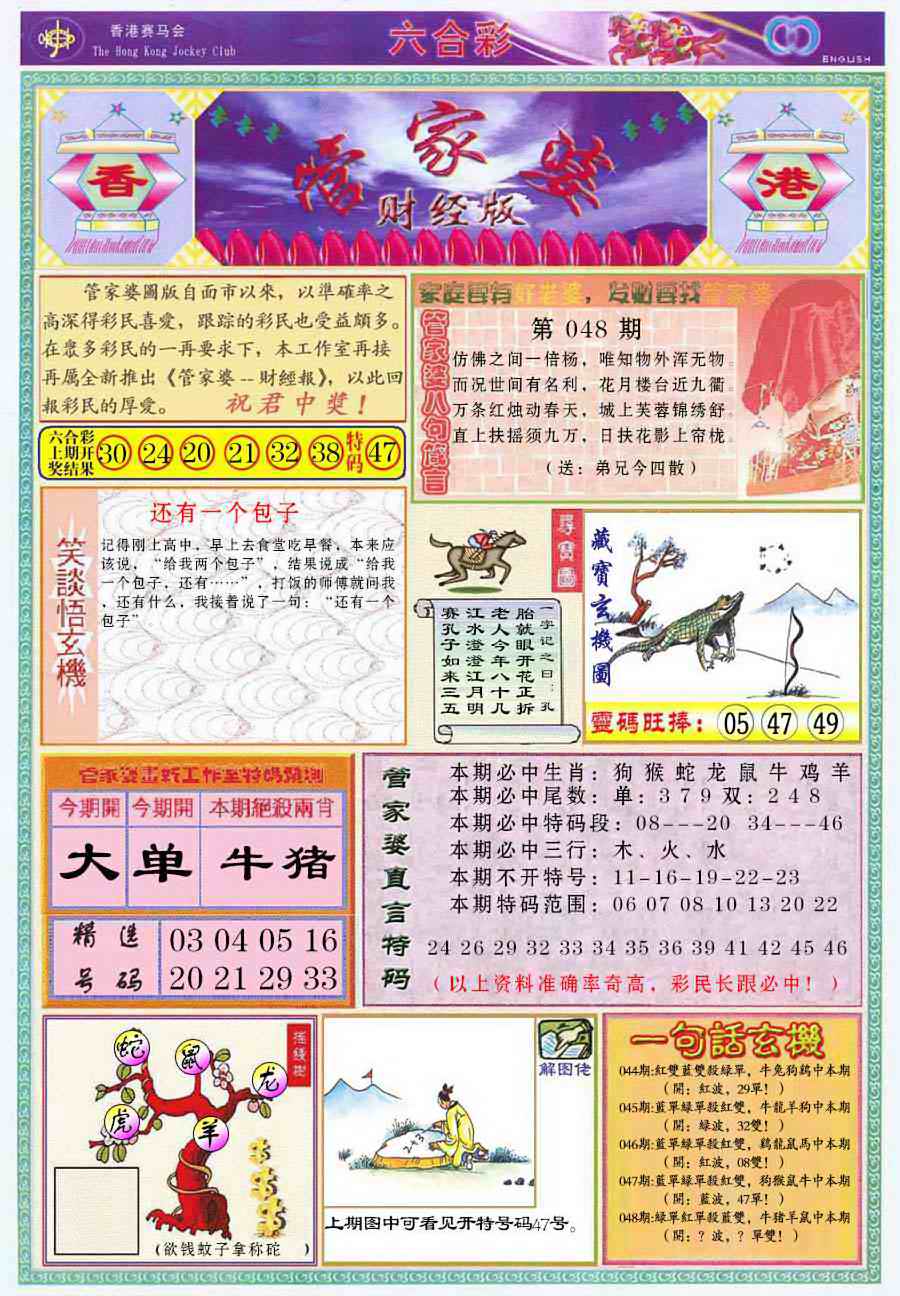 香港赛马会
The Hong Kong Jockey Club
六合彩
ENGLISH
香
管家婆
财经版
港
管家婆圖版自面市以來，以準確率之
高深得彩民喜愛，跟踪的彩民也受益頗多。
在眾多彩民的一再要求下，本工作室再接
再厲全新推出《管家婆--財經報》，以此回
報彩民的厚愛。 祝君中獎！
六合彩
上期开
奖结果
30 24 20 21 32 38 特码 47
家庭要有好老婆，发财要找管家婆
管家婆八句箴言
第 048 期
仿佛之间一倍杨，唯知物外浑无物。
而况世间有名利，花月楼台近九衢。
万条红烛动春天，城上芙蓉锦绣舒。
直上扶摇须九万，日扶花影上帘栊。
（送：弟兄今四散）
笑談悟玄機
还有一个包子
记得刚上高中，早上去食堂吃早餐，本来应
该说，“给我两个包子”，结果说成“给我
一个包子，还有……”，打饭的师傅就问我
，还有什么，我接着说了一句：“还有一个
包子”
尋寶圖
一字记之曰：孔
胎就眼开花正拆
老人今年八十几
江水澄澄江月明
赛孔子如来三五
藏寶玄機圖
靈碼旺捧：05 47 49
管家婆最新工作室特码预测
今期開 今期開 本期絕殺兩肖
大 单 牛猪
精选
号码
03 04 05 16
20 21 29 33
管家婆直言特码
本期必中生肖：狗 猴 蛇 龙 鼠 牛 鸡 羊
本期必中尾数：单：3 7 9 双：2 4 8
本期必中特码段：08---20 34---46
本期必中三行：木、火、水
本期不开特号：11-16-19-22-23
本期特码范围：06 07 08 10 13 20 22
24 26 29 32 33 34 35 36 39 41 42 45 46
（以上资料准确率奇高，彩民长跟必中！）
摇錢樹
蛇
鼠
龙
虎
羊
（欲钱蚊子拿称砣 ）
解图佬
2+3
上期图中可看见开特号码47号。
一句話玄機
044期:紅雙藍雙殺綠單，牛兔狗鷄中本期
（開：紅波，29單！）
045期:藍單綠單殺紅雙，牛龍羊狗中本期
（開：綠波，32雙！）
046期:藍單綠單殺紅雙，鷄龍鼠馬中本期
（開：紅波，08雙！）
047期:藍單綠單殺紅雙，狗猴鼠牛中本期
（開：藍波，47單！）
048期:綠單紅單殺藍雙，牛猪羊鼠中本期
（開：？波，？單雙！）